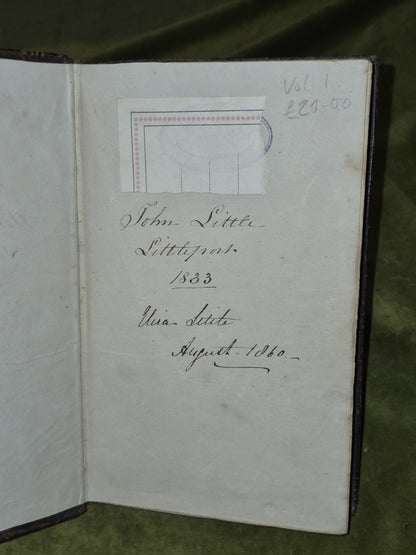 Vol 1
£20-00
John Little
Littleport
1833
Eliza Little
August - 1860 -